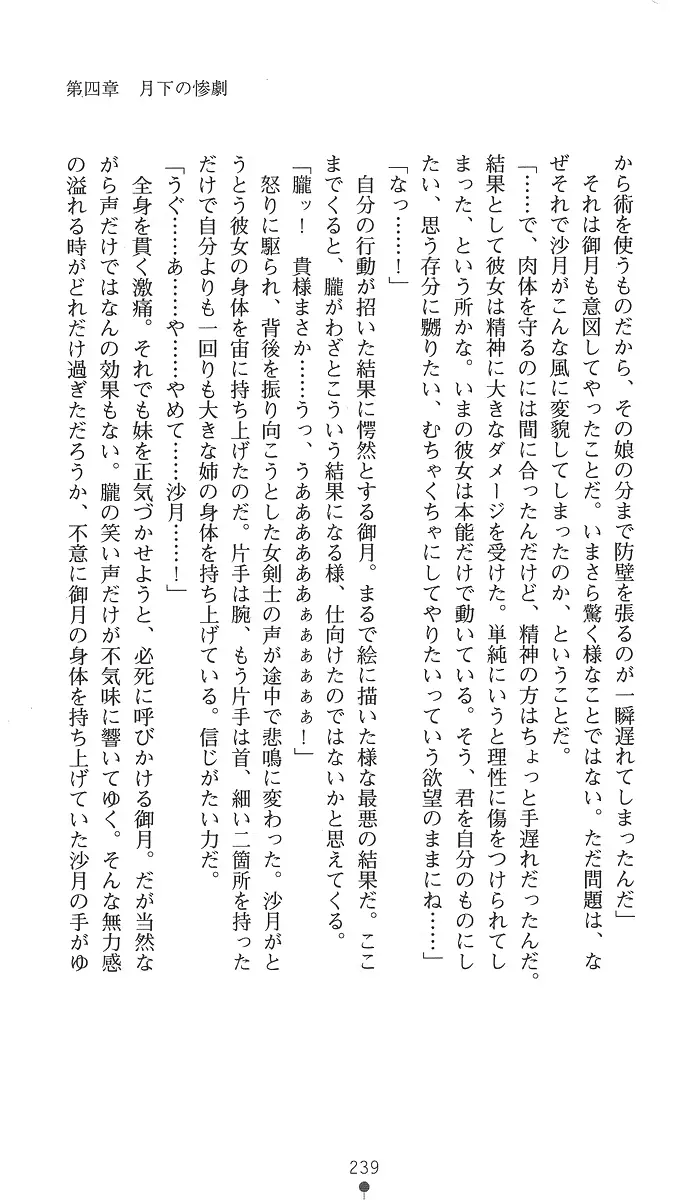 第四章　月下の惨劇
から術を使うものだから、その娘の分まで防壁を張るのが一瞬遅れてしまったんだ」
　それは御月も意図してやったことだ。いまさら驚く様なことではない。ただ問題は、な
ぜそれで沙月がこんな風に変貌してしまったのか、ということだ。
「……で、肉体を守るのには間に合ったんだけど、精神の方はちょっと手遅れだったんだ。
結果として彼女は精神に大きなダメージを受けた。単純にいうと理性に傷をつけられてし
まった、という所かな。いまの彼女は本能だけで動いている。そう、君を自分のものにし
たい、思う存分に嬲りたい、むちゃくちゃにしてやりたいっていう欲望のままにね……」
「なっ……！」
　自分の行動が招いた結果に愕然とする御月。まるで絵に描いた様な最悪の結果だ。ここ
までくると、朧がわざとこういう結果になる様、仕向けたのではないかと思えてくる。
「朧ッ！　貴様まさか……うっ、うあああああぁぁぁぁぁぁ！」
　怒りに駆られ、背後を振り向こうとした女剣士の声が途中で悲鳴に変わった。沙月がと
うとう彼女の身体を宙に持ち上げたのだ。片手は腕、もう片手は首、細い二箇所を持った
だけで自分よりも一回りも大きな姉の身体を持ち上げている。信じがたい力だ。
「うぐ……あ……や……やめて……沙月……！」
　全身を貫く激痛。それでも妹を正気づかせようと、必死に呼びかける御月。だが当然な
がら声だけではなんの効果もない。朧の笑い声だけが不気味に響いてゆく。そんな無力感
の溢れる時がどれだけ過ぎただろうか、不意に御月の身体を持ち上げていた沙月の手がゆ
239